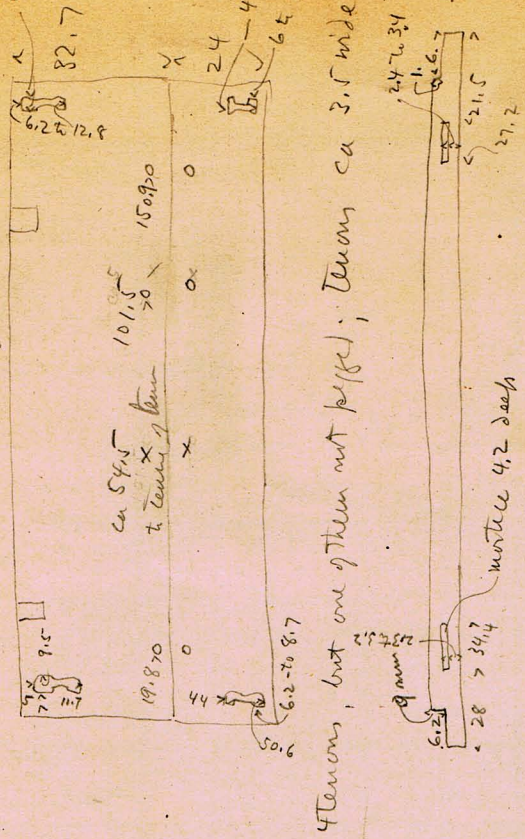 32.7
24 – 4
6.2 to 12.8
150.9 > 0
101.5 > 0
ca 54.5
to centre of tenon
9.5
19.8 > 0
44
50.6
6.2 to 8.7
4 tenons, but one of them not pegged; tenons ca 3.5 wide
2.4 to 3.4
21.5
27.2
mortice 4.2 deep
9 mm
6.2
28 > 34.4